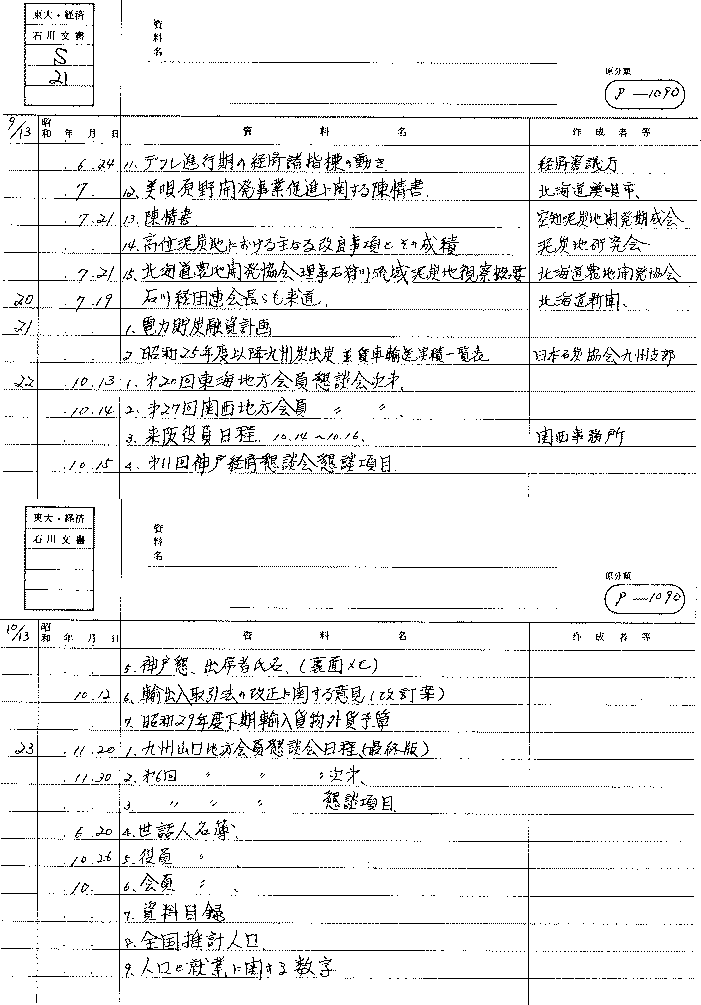 東大・経済
石川文書
S
21
資料名
原分類
P-1090
9/13 昭和 年 月 日 資料名 作成者等
6.24 11. デフレ進行期の経済諸指標の動き 経済審議庁
7. 12. 美唄原野開発事業促進に関する陳情書 北海道美唄市、
7.21 13. 陳情書 空知泥炭地開発期成会
14. 高位泥炭地における主なる改良事項とその成績 泥炭地研究会
7.21 15. 北海道農地開発協会理事石狩川流域泥炭地視察概要 北海道農地開発協会
20 7.19 石川経団連会長らも来道、 北海道新聞、
21 1. 電力貯炭融資計画
2. 昭和25年度以降九州炭出炭並貨車輸送実績一覧表 日本石炭協会九州支部
22 10.13 1. 第20回東海地方会員懇談会次第、
10.14 2. 第27回関西地方会員 〃 〃、
3. 来阪役員日程 10.14~10.16、 関西事務所
10.15 4. 第11回神戸経済懇談会懇談項目
東大・経済
石川文書
資料名
原分類
P-1090
10/13 昭和 年 月 日 資料名 作成者等
5. 神戸懇、出席者氏名、(裏面メモ)
10.12 6. 輸出入取引法の改正に関する意見(改訂案)
7. 昭和29年度下期輸入貨物外貨予算
23 11.20 1. 九州山口地方会員懇談会日程、(最終版)
11.30 2. 第6回 〃 〃 〃次第、
3. 〃 〃 〃 懇談項目
6.20 4. 世話人名簿、
10.26 5. 役員 〃
10. 6. 会員 〃 、
7. 資料目録
8. 全国推計人口
9. 人口と就業に関する数字